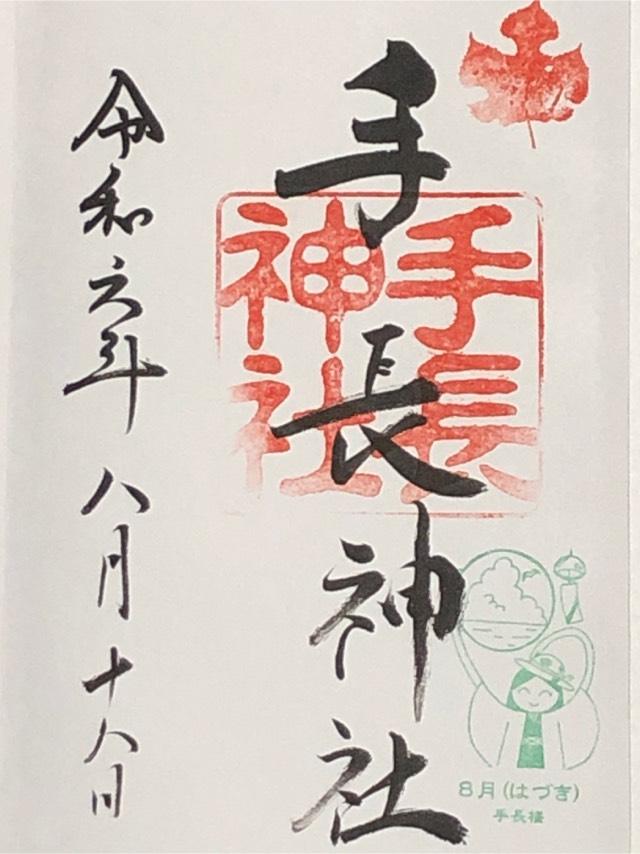 手長神社
手長
神社
8月(はづき)
手長様
令和六年八月十八日